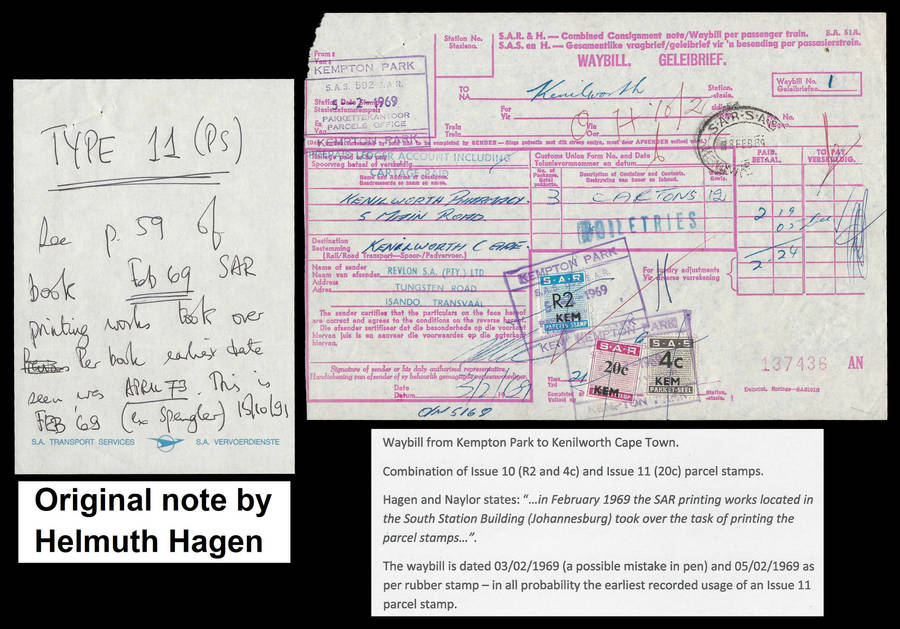 TYPE 11 (PS)
See p. 59 of
book Feb 69 SAR
printing works took over
Per book earliest date
seen was APRIL 73 This is
FEB '69 (ex Spengler) 18/10/91
S.A. TRANSPORT SERVICES S.A. VERVOERDIENSTE
Original note by
Helmuth Hagen
Station No.
Stasieno.
S.A.R. & H. — Combined Consignment note/Waybill per passenger train.
S.A.S. en H. — Gesamentlike vragbrief/geleibrief vir 'n besending per passasierstrein.
S.A. 51A.
WAYBILL. GELEIBRIEF.
From:
Van:
KEMPTON PARK
S.A.S. 592 S.A.R.
5-2-1969
PAKKETTEKANTOOR
PARCELS OFFICE
KEMPTON PARK
TO
NA
Kenilworth
Station.
stasie.
Waybill No.
Geleibriefno.
1
For
Vir
Train
Trein
Via
Oor
O H 10/2
No.
S.A.R-S.A.S.
FEB 69
LEDGER ACCOUNT INCLUDING
CARTAGE PAID
Customs Union Form No. and Date
Tolunievormnommer en datum
PAID.
BETAAL.
TO PAY
VERSKULDIG.
Name and Address of Consignee.
Description of Container and Contents.
Beskrywing van houer en inhoud.
KENILWORTH PHARMACY.
5 MAIN ROAD.
3 CARTONS 12
TOILETRIES
2 19
05
2 24
Destination
Bestemming
KENILWORTH CAPE.
(Rail/Road Transport—Spoor-/Padvervoer.)
Name of sender
Naam van afsender
REVLON S.A. (PTY.) LTD
Address
Adres
TUNGSTEN ROAD
ISANDO, TRANSVAAL
For sundry adjustments
Vir diverse verrekening
The sender certifies that the particulars on the face hereof
are correct and agrees to the conditions on the reverse hereof.
Die afsender sertifiseer dat die besonderhede op die voorkant
hiervan juis is en aanvaar die voorwaardes op die agterkant
hiervan.
Signature of sender or his duly authorised representative.
Date
Datum
3/2/69
KEMPTON PARK
1969
R2
KEM
PARCELS STAMP
S-A-R
20c
KEM
S-A-S
4c
KEM
PARKED-SEEL
137436 AN
Waybill from Kempton Park to Kenilworth Cape Town.
Combination of Issue 10 (R2 and 4c) and Issue 11 (20c) parcel stamps.
Hagen and Naylor states: “…in February 1969 the SAR printing works located in
the South Station Building (Johannesburg) took over the task of printing the
parcel stamps…”.
The waybill is dated 03/02/1969 (a possible mistake in pen) and 05/02/1969 as
per rubber stamp – in all probability the earliest recorded usage of an Issue 11
parcel stamp.